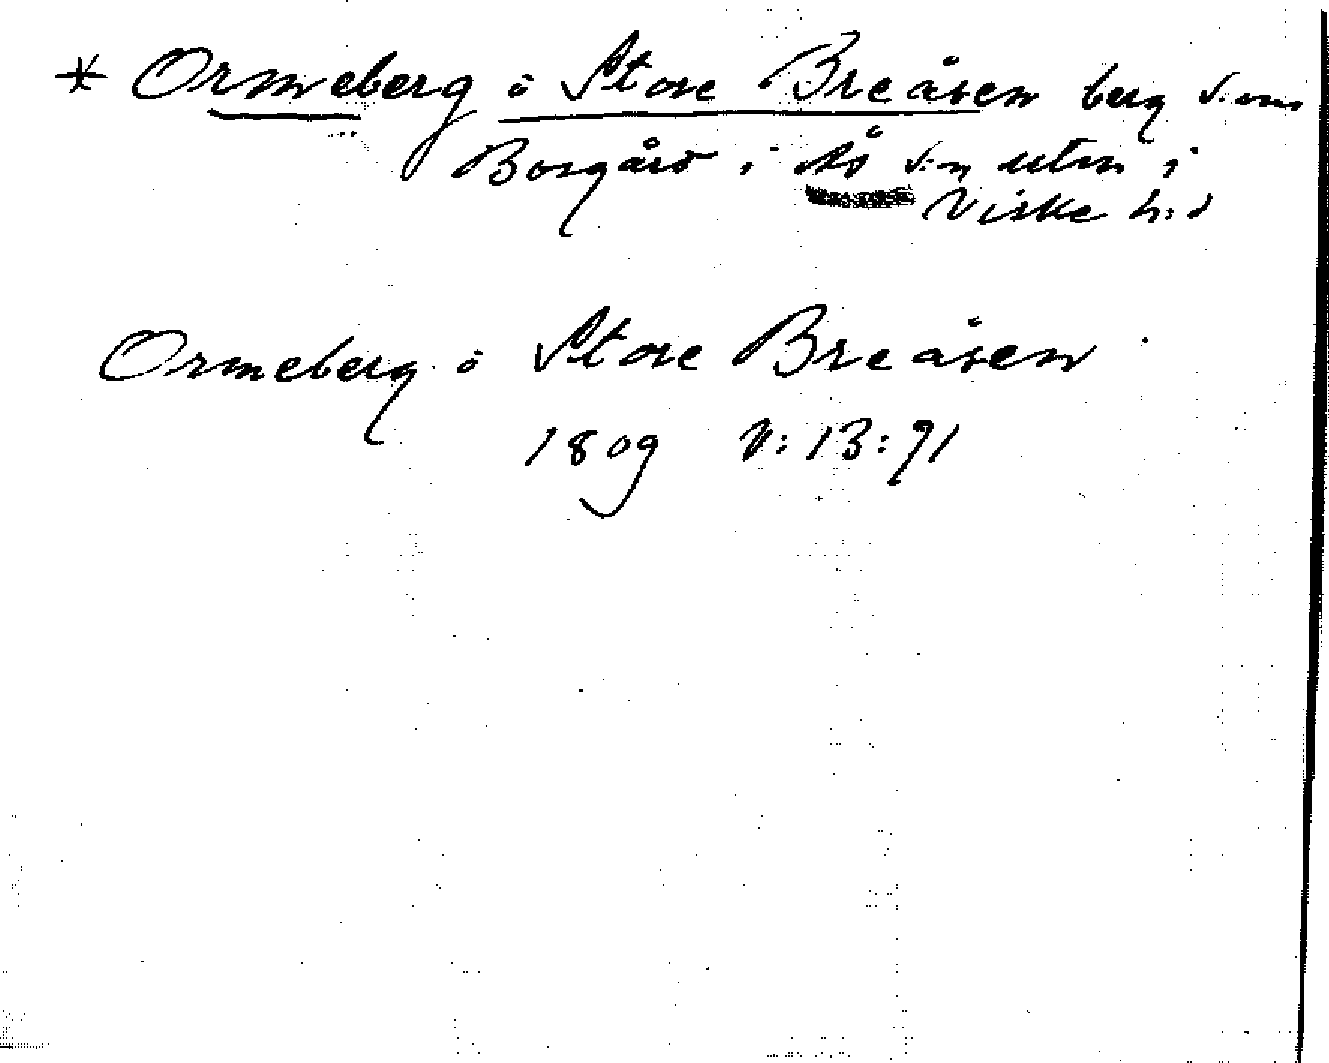 * Ormeberg ö Store Breåsen berg
Bosgård i Ås s:n utm i
Viske h:d
Ormeberg ö Store Breåsen
1809 V:13:91